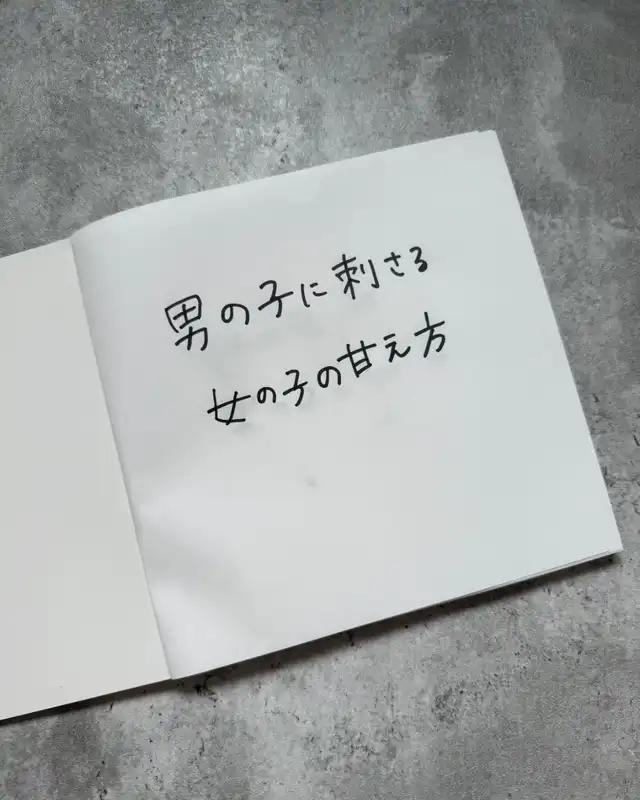 男の子に刺さる
女の子の甘え方